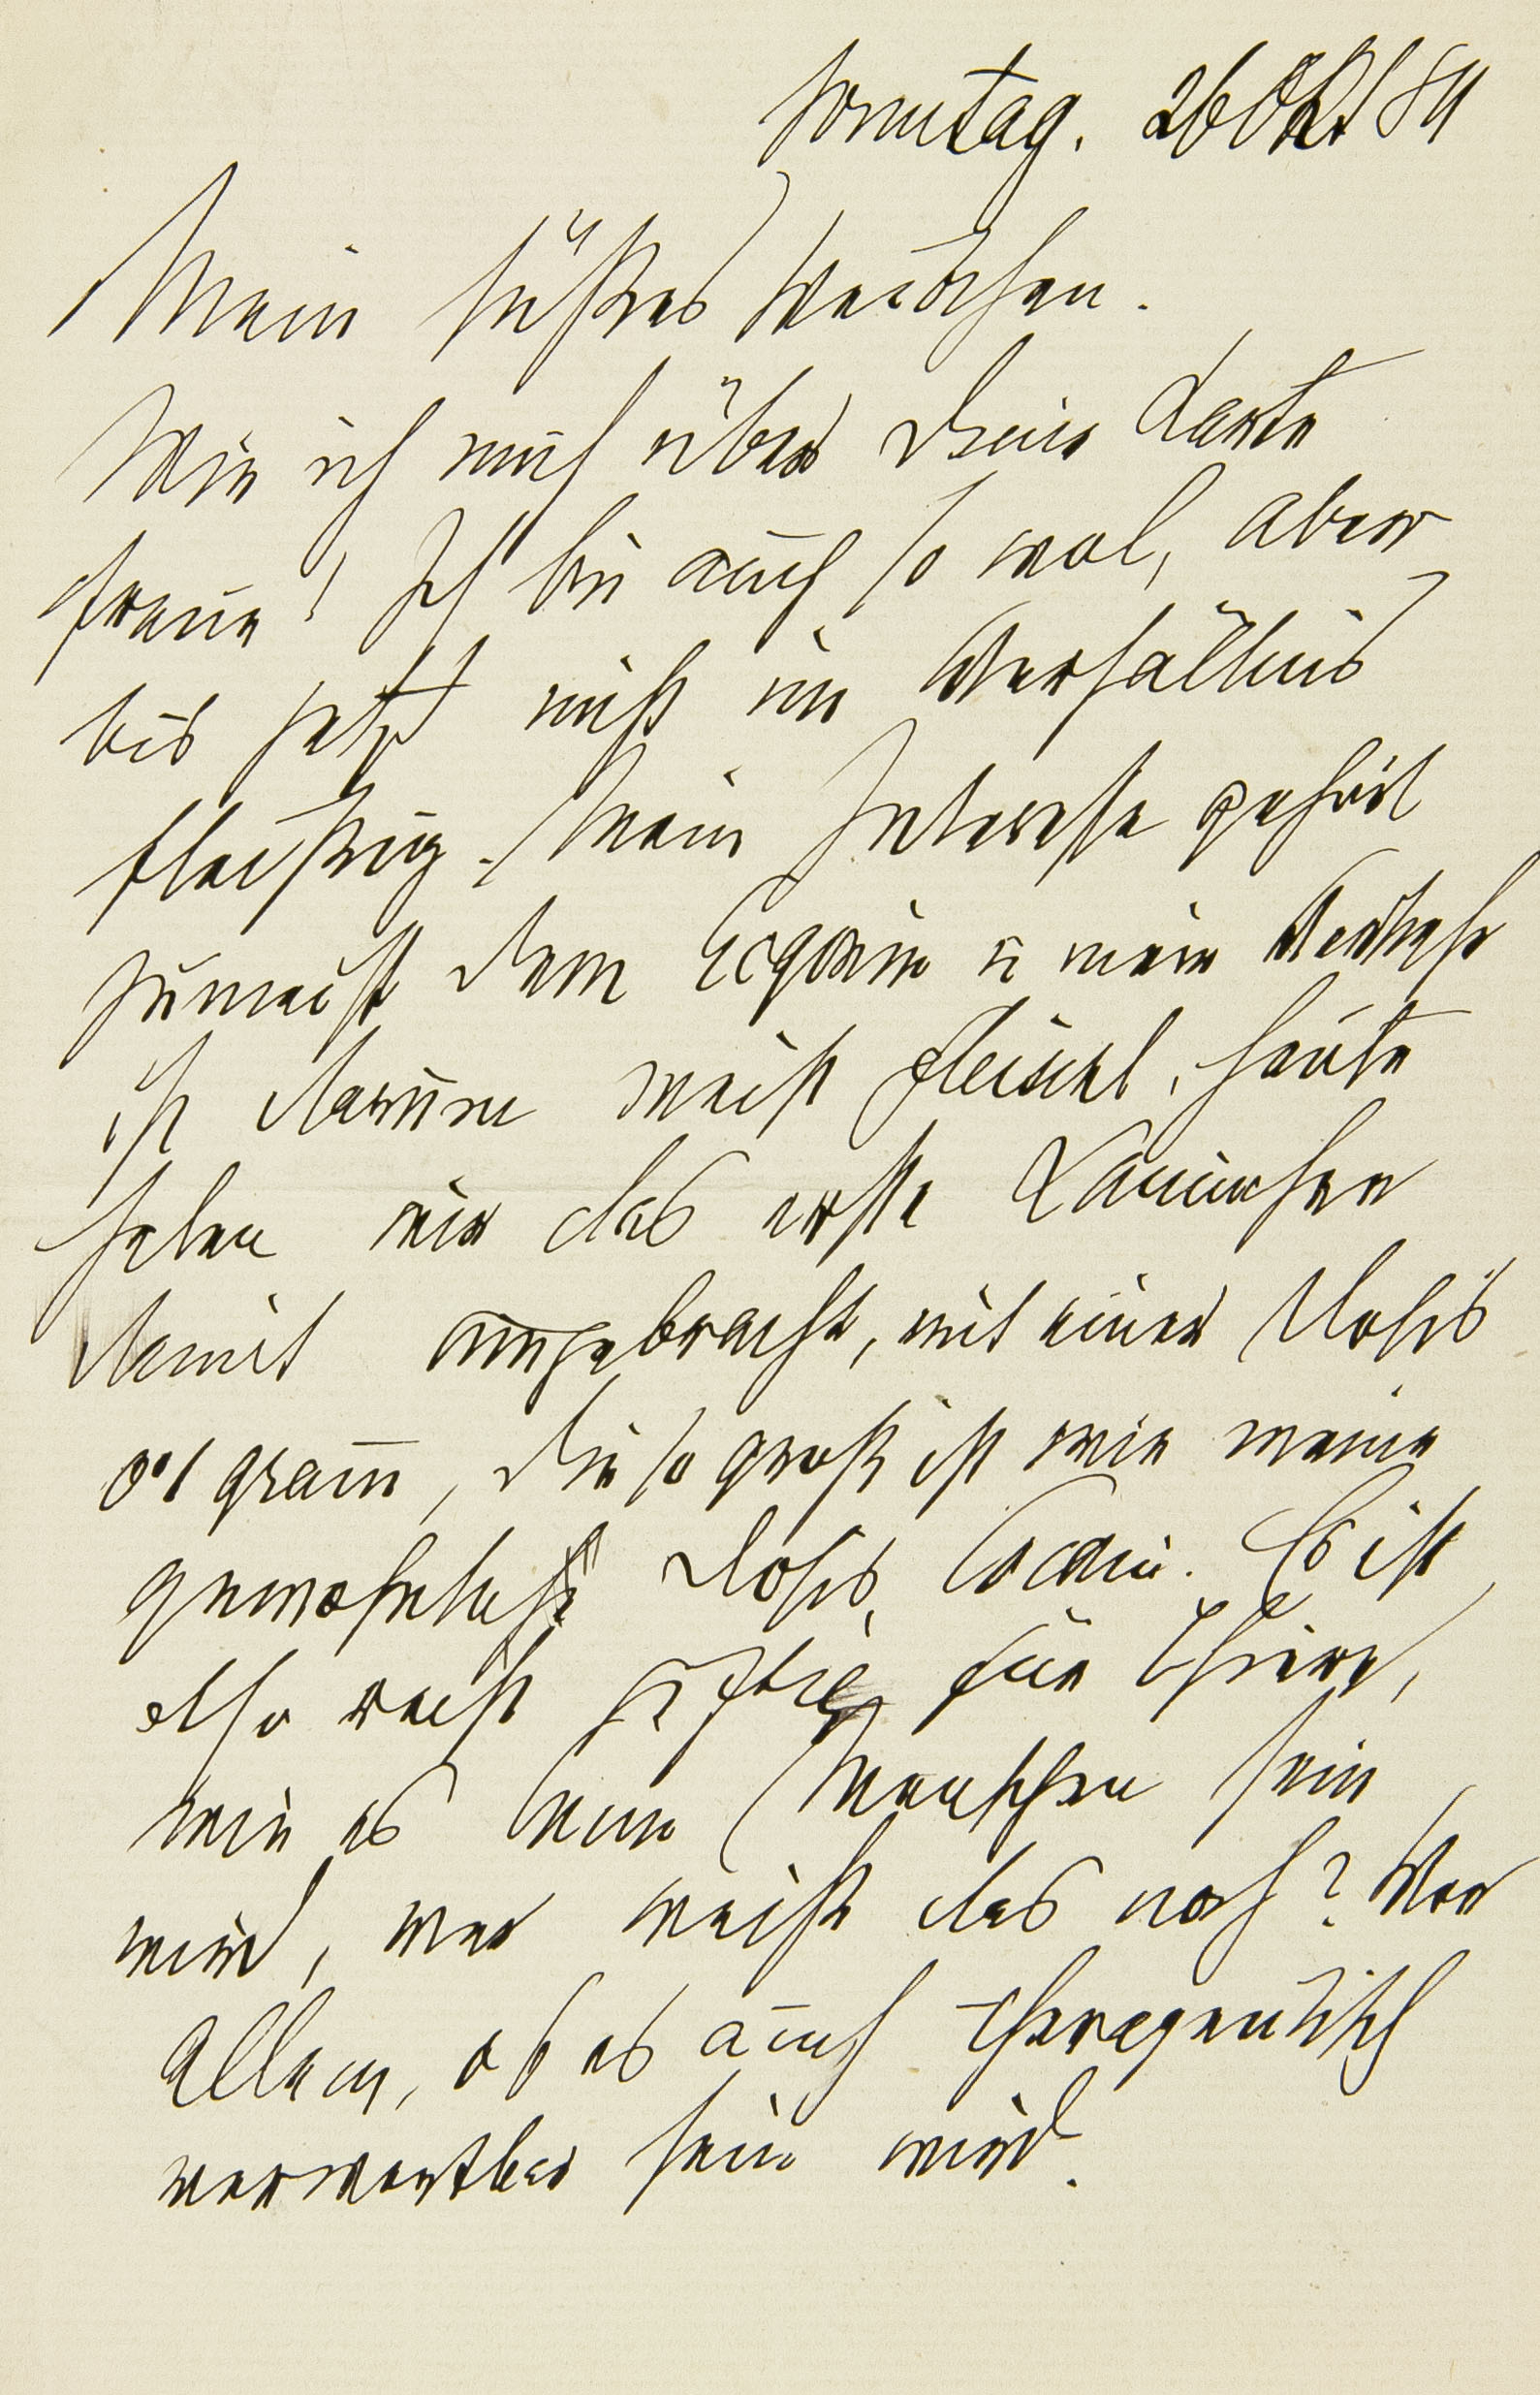 Sonntag. 26 Okt 84
Mein süßes Weibchen.
Wie ich mich über Deine Karte
freue! Ich bin auch so wol, aber
bis jetzt nicht im Verhältnis
fleißig. Mein Interesse gehört
zumeist dem Ecgonin u mein Verkehr
ist darum meist Fleischl, heute
haben wir das erste Kaninchen
damit umgebracht, mit einer Dosis
0·1 gram̅, die so groß ist wie meine
gewöhnliche Dosis Cocain. Es ist
also recht giftig für Thiere,
wie es beim Menschen sein
wird, wer weiß das noch? Vor
Allem, ob es auch therapeutisch
verwertbar sein wird.